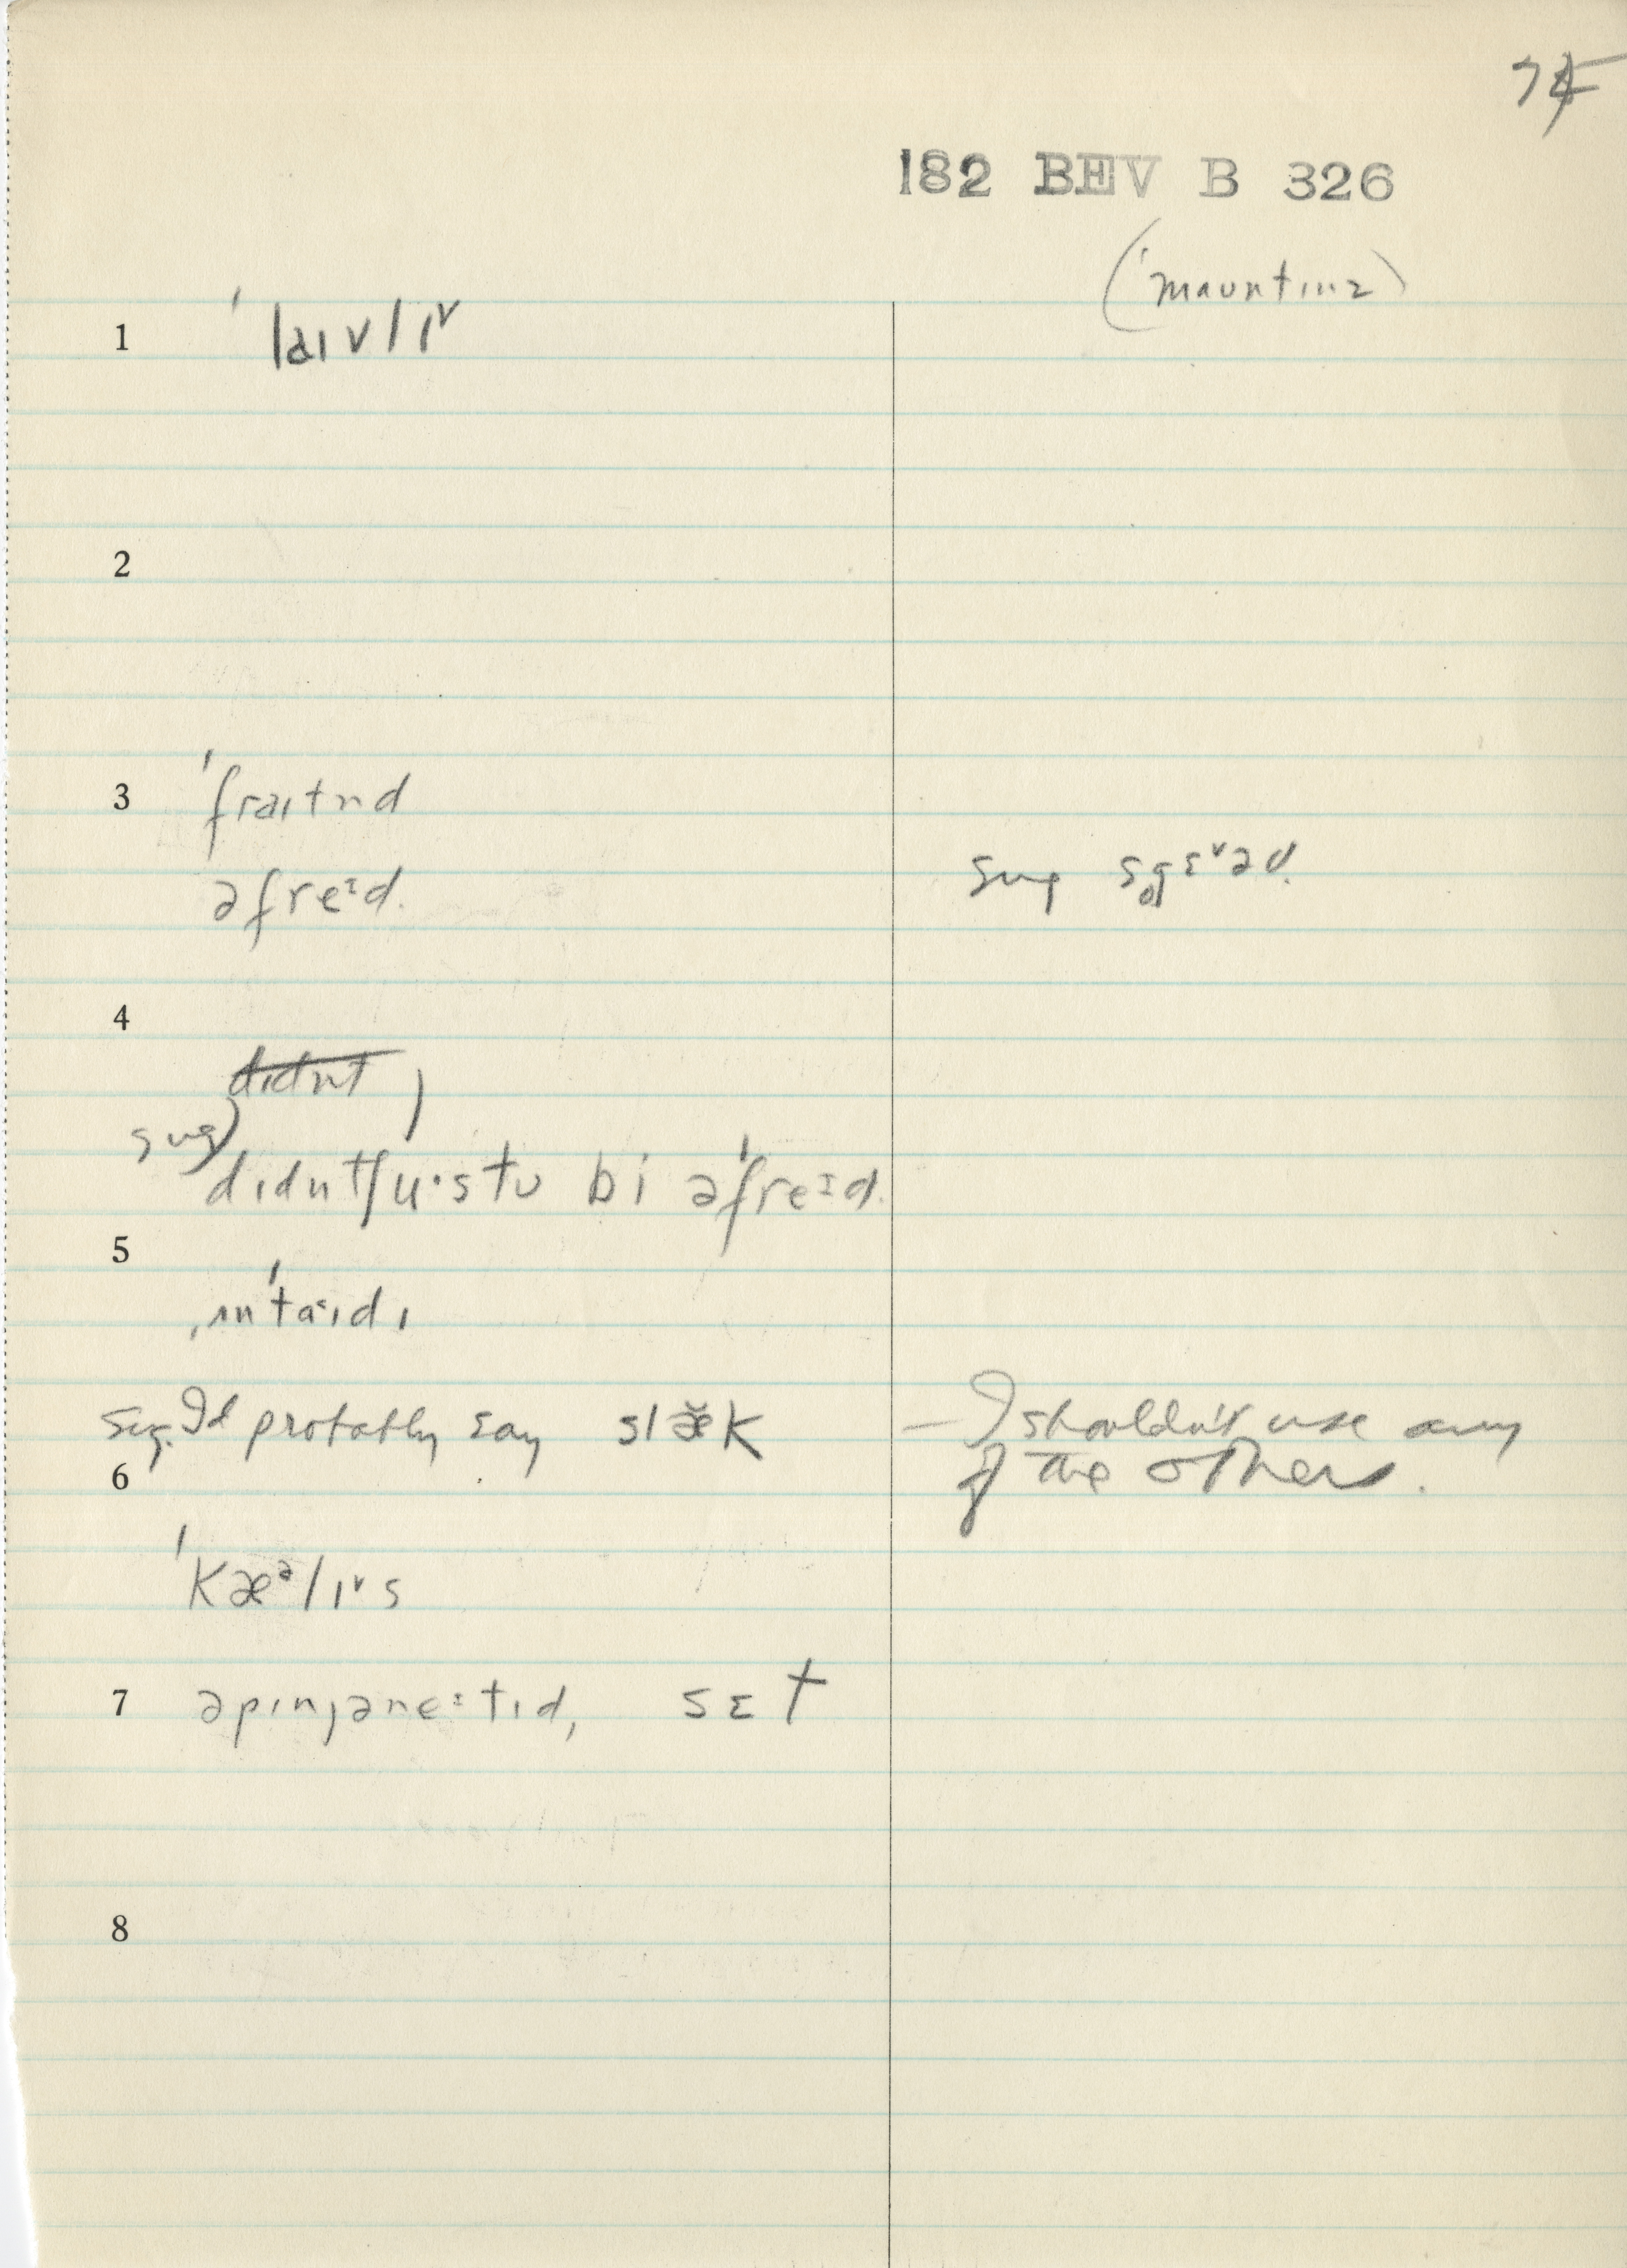 182 BEV B 326
(ˈmaʊntɪnz)
1 ˈlaɪvlɪ˅
2
3 ˈfraɪtnd
əˈfreɪd.
4
didnt
sug) dɪdntʃu·stʊ bi əˈfreɪd.
5
ˌʌnˈtaɪdɪ
sug. I'd probably say slæk – I shouldn't use any
6 of the others.
ˈkæᵊlɪ˅s
7 əpɪnjəneɪtɪd, sɛt
8